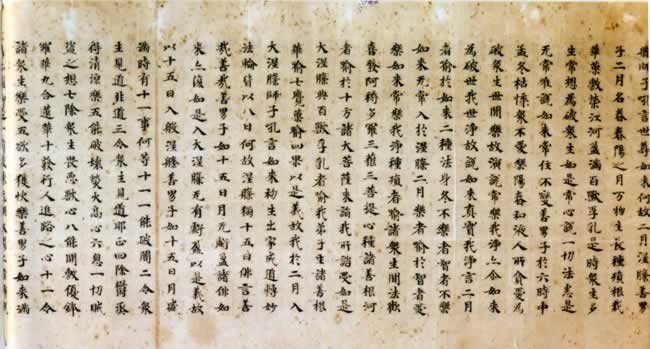 師子吼言世尊如來何故二月涅槃善男
子二月名春春陽之月万物生長種殖根栽
華菓敷榮江河盈滿百獸孚乳是時衆生多
生常想為破衆生如是常心說一切法悉是
无常唯說如來常住不變善男子於六時中
孟冬枯悴衆不愛樂陽春和液人所貪愛為
破衆生世間樂故演說常樂我淨亦尒如來
為破世我世淨故說如來真實我淨言二月
者喻於如來二種法身冬不樂者智者不樂
如來无常入於涅槃二月樂者喻於智者愛
樂如來常樂我淨種殖者喻諸衆生聞法歡
喜發阿耨多羅三藐三菩提心種諸善根河
者喻於十方諸大菩薩來詣我所諮受如是
大涅槃典百獸孚乳者喻我弟子生諸善根
華喻七覺菓喻四果以是義故我於二月入
大涅槃師子吼言如來初生出家成道轉妙
法輪皆以八日何故涅槃獨十五日佛言善
哉善哉善男子如十五日月无虧盈諸佛如
來亦復如是入大涅槃无有虧盈以是義故
以十五日入般涅槃善男子如十五日月盛
滿時有十一事何等十一一能破闇二令衆
生見道非道三令衆生見道耶正四除欝蒸
得清涼樂五能破壞熒火高心六息一切賊
盜之想七除衆生畏惡獸心八能開敷優鉢
羅華九合蓮華十發行人進路之心十一令
諸衆生樂受五欲多獲快樂善男子如來滿